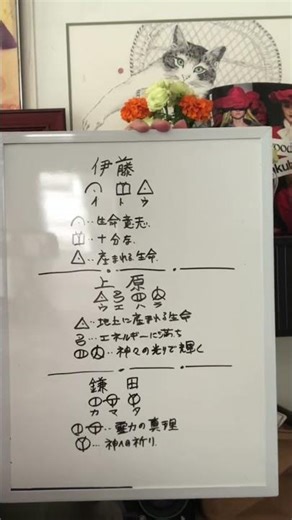 伊藤
イ ト ウ
‥生命意志.
‥十分な.
‥産まれる生命.
上 原
ウ エ ハ ラ
‥地上に産まれる生命
‥エネルギーに満ち
‥神々の光りで輝く
鎌 田
カ マ タ
‥霊力の真理
‥神へ祈り.